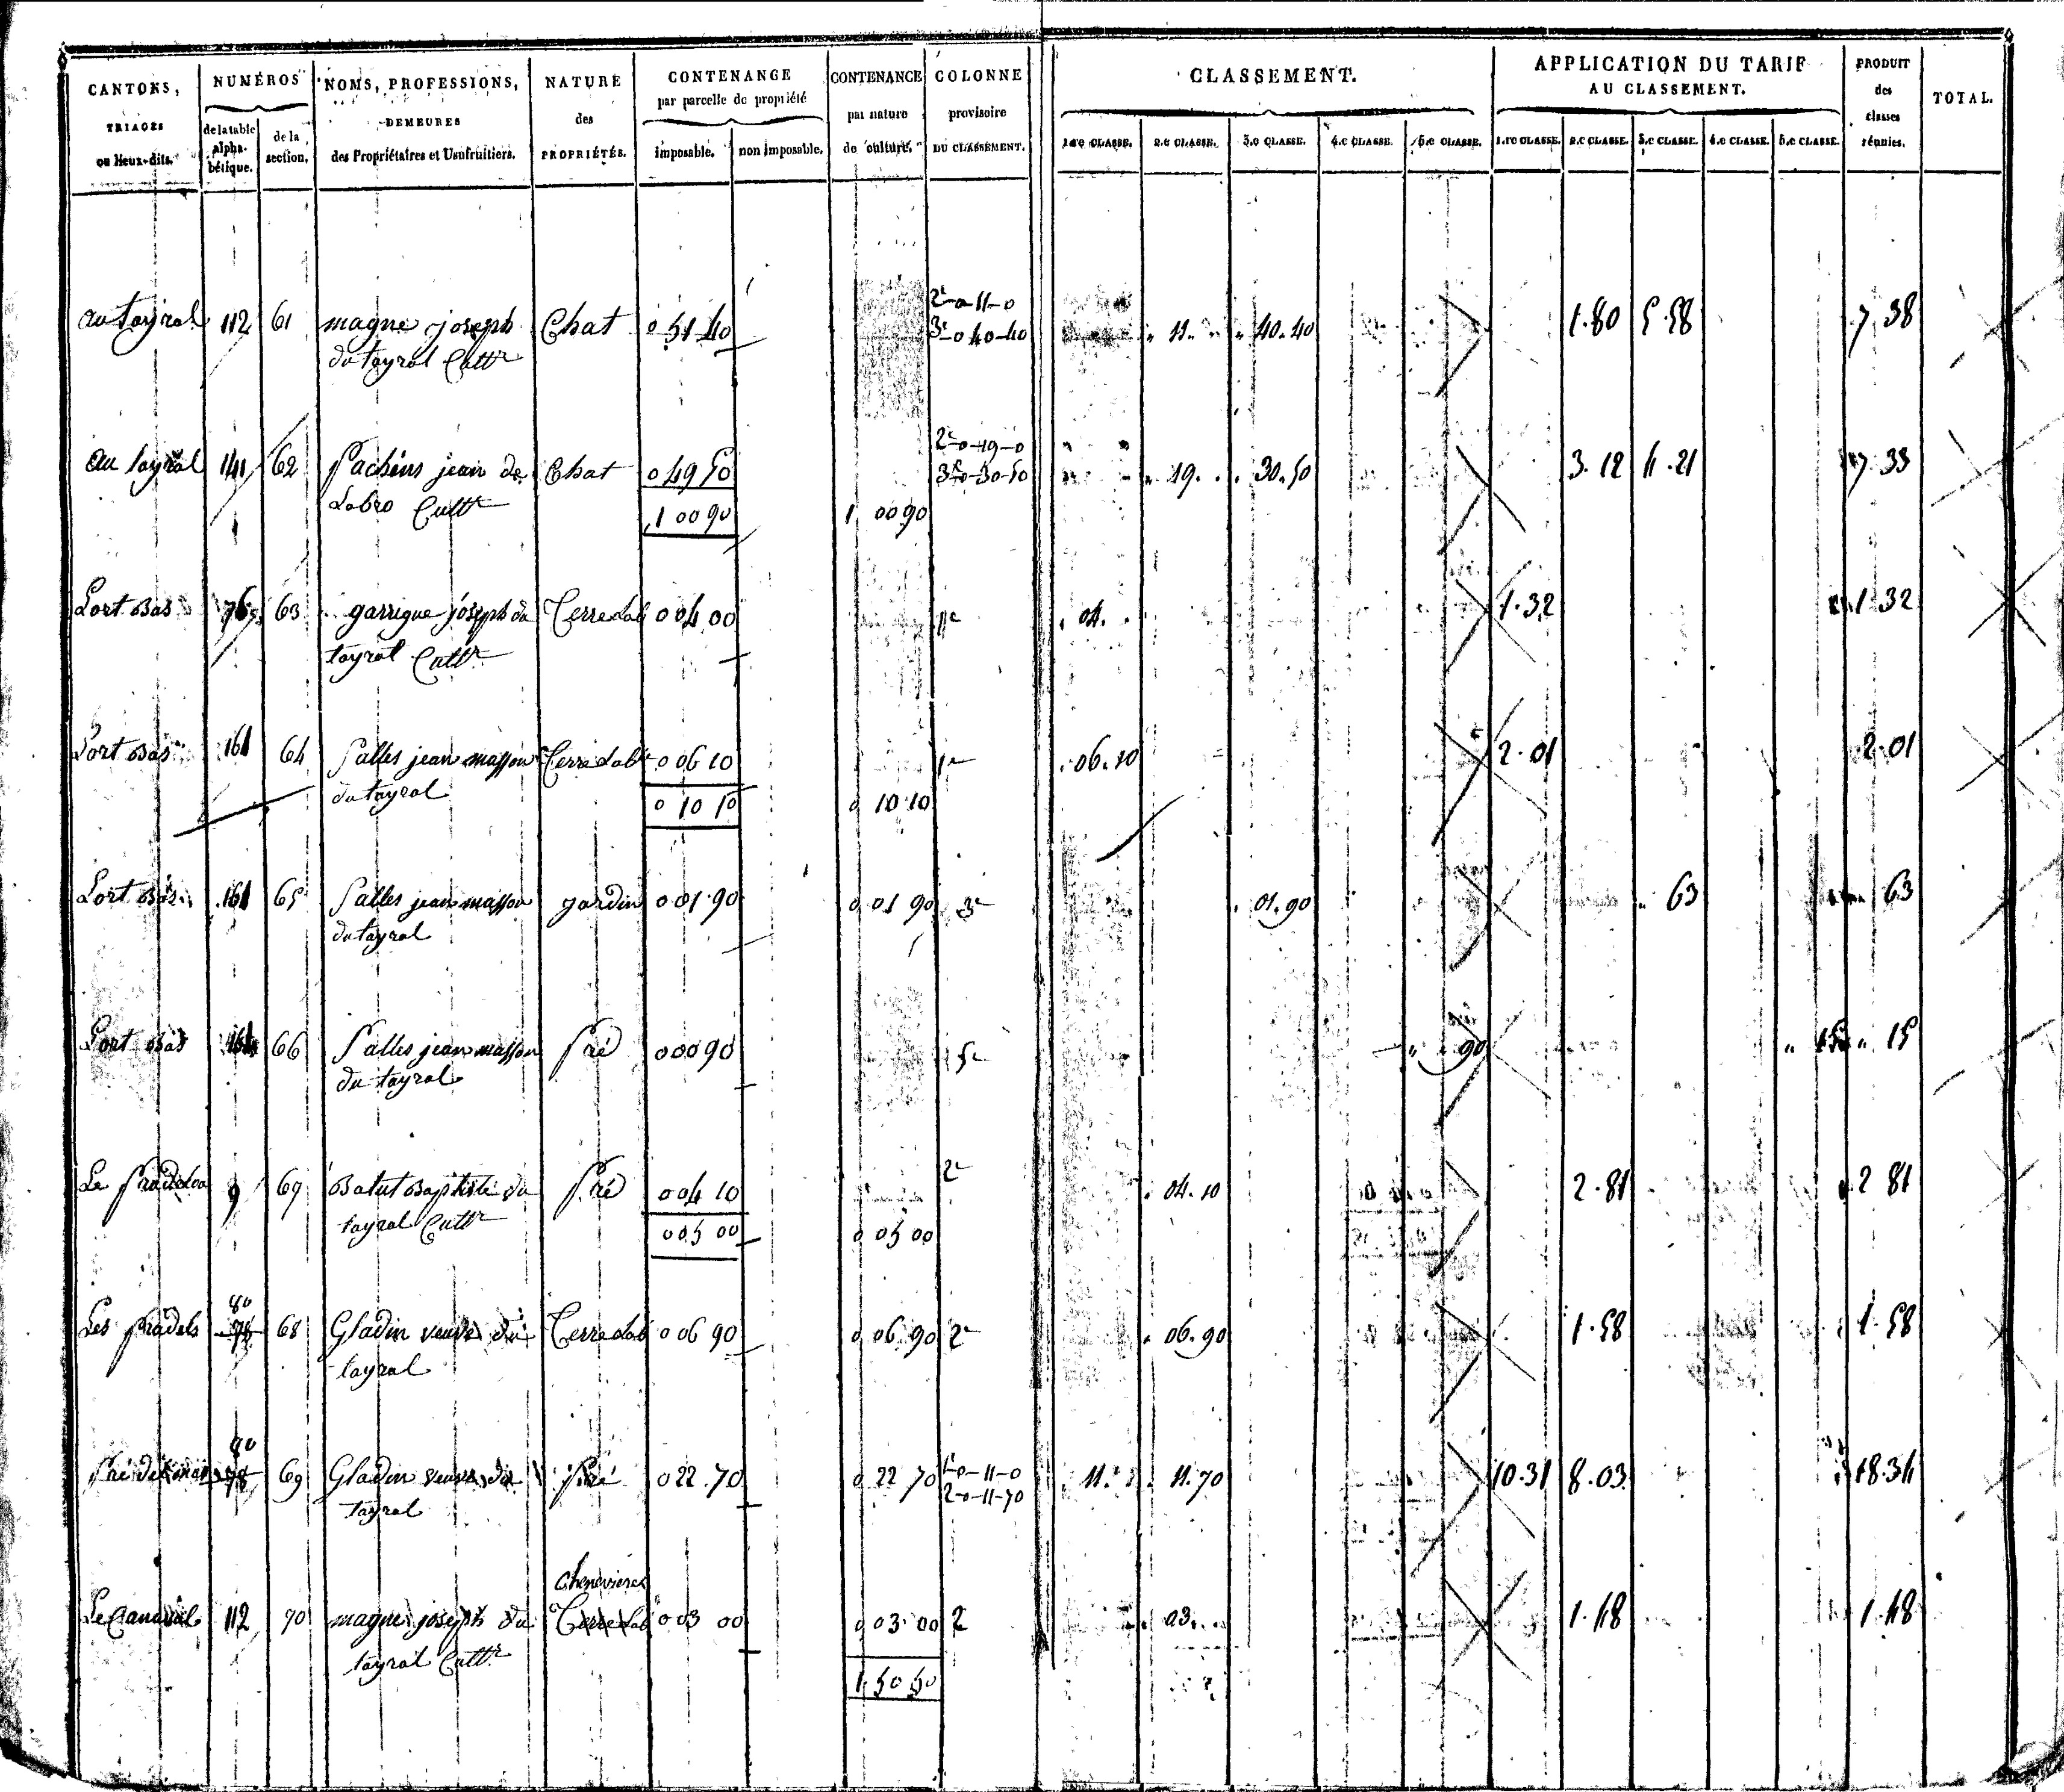 CANTONS, TRIAGES ou lieux-dits.
NUMÉROS de la table alphabétique. de la section.
NOMS, PROFESSIONS, DEMEURES des Propriétaires et Usufruitiers.
NATURE des PROPRIÉTÉS.
CONTENANCE par parcelle de propriété imposable. non imposable.
CONTENANCE par nature de culture.
COLONNE provisoire DU CLASSEMENT.
CLASSEMENT.
1.re CLASSE. 2.e CLASSE. 3.e CLASSE. 4.e CLASSE. 5.e CLASSE.
APPLICATION DU TARIF AU CLASSEMENT.
1.re CLASSE. 2.e CLASSE. 3.e CLASSE. 4.e CLASSE. 5.e CLASSE.
PRODUIT des classes réunies.
TOTAL.
2e 0 11-0
au tayral 112 61 magne joseph Chat 0 51 40 3e 0 40-40 " 11. " " 40.40 1.80 5.58 7 38
du tayral Cultr
2e 0-19-0
au tayral 141 62 Pachins jean de Chat 0 49 50 3e 0-30-50 " 19. " 30.50 3.12 4.21 7 33
Labro Cultr 1 00 90 1 00 90
Lort bas 76 63 garrigue joseph du Terre Lab 0 04 00 1e " 04. 1.32 1 32
tayral Cultr
Lort bas 161 64 Salles jean masson Terre Lab 0 06 10 1e " 06.10 2.01 2.01
du tayral 0 10 10 0 10 10
Lort bas 161 65 Salles jean masson jardin 0 01 90 0 01 90 3e " 01.90 " 63 63
du tayral
Lort bas 161 66 Salles jean masson Pré 0 00 90 5e " " 90 " 15 " 15
du tayral
Le 9 67 Batut Baptiste du Pré 0 04 10 2e " 04.10 2.81 2 81
tayral Cultr 0 05 00 0 05 00
80
Les pradels 78 68 Gladin veuve du Terre Lab 0 06 90 0 06 90 2e " 06.90 1.58 1.58
tayral
80 1e 0-11-0
Pré 78 69 Gladin veuve du Pré 0 22 70 0 22 70 2-0-11-70 " 11. " 11.70 10.31 8.03 18.34
tayral
Chenevieres
Le Canaval 112 70 magne joseph du Terre Lab 0 03 00 0 03 00 2 " 03. 1.48 1.48
tayral Cultr
1 50 50